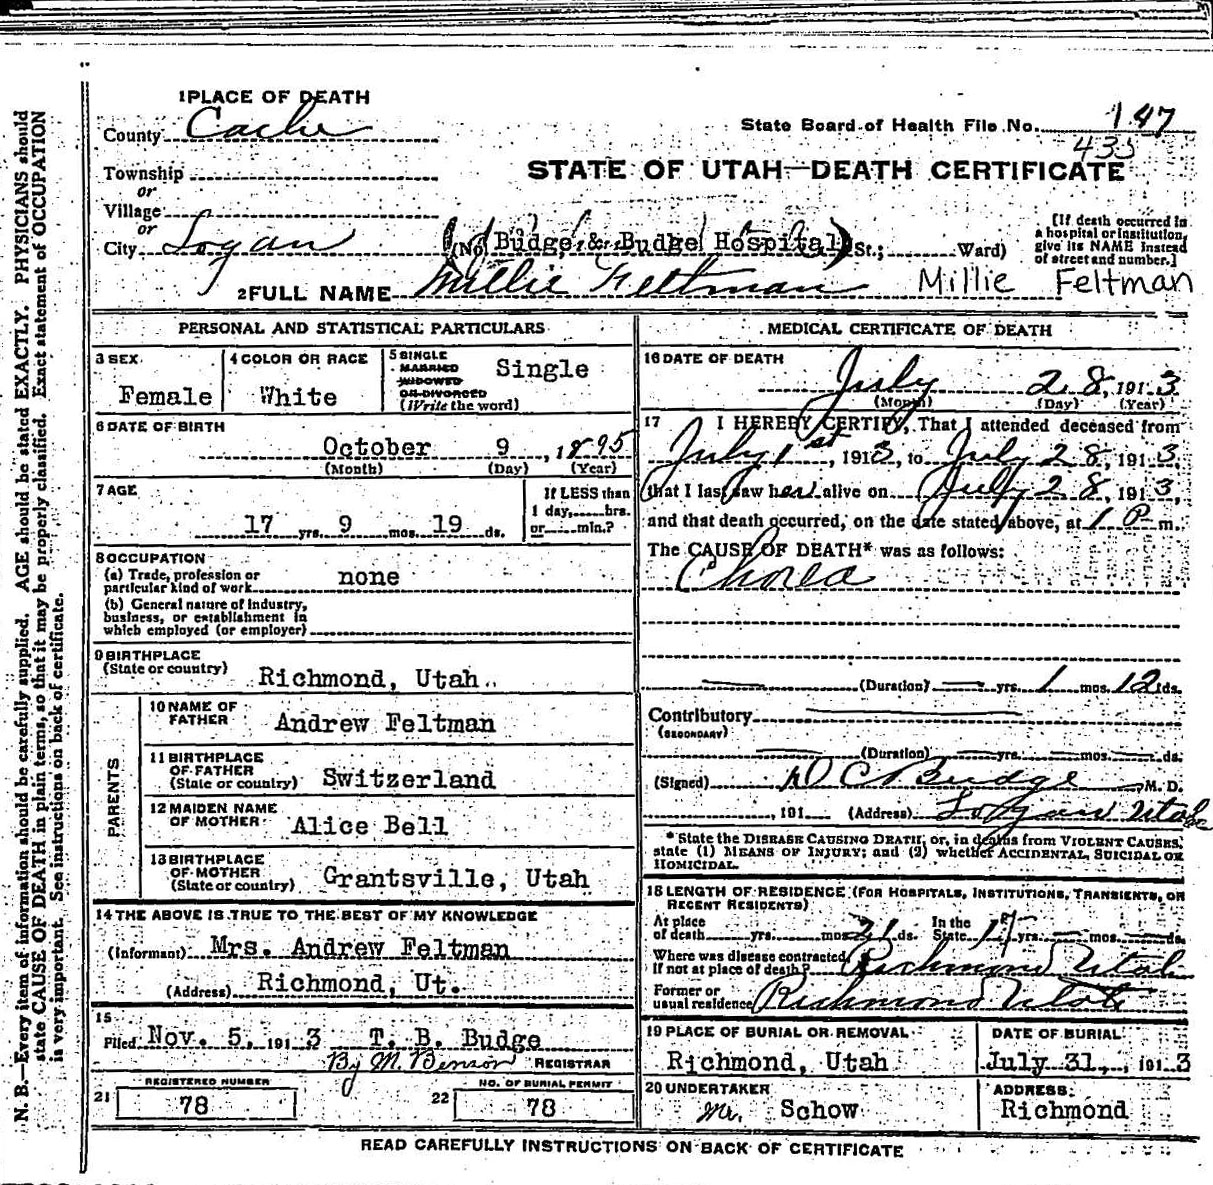 1 PLACE OF DEATH
County Cache
State Board of Health File No. 147
435
Township
STATE OF UTAH—DEATH CERTIFICATE
or
Village
or
City Logan (No. Budge & Budge Hospital) St.; Ward)
[If death occurred in a hospital or institution, give its NAME instead of street and number.]
2 FULL NAME Millie Feltman Millie Feltman
PERSONAL AND STATISTICAL PARTICULARS
3 SEX
Female
4 COLOR OR RACE
White
5 SINGLE
MARRIED
WIDOWED
OR DIVORCED
(Write the word)
Single
6 DATE OF BIRTH
October 9, 1895
(Month) (Day) (Year)
7 AGE
17 yrs. 9 mos. 19 ds.
If LESS than
1 day,......hrs.
or......min.?
8 OCCUPATION
(a) Trade, profession or
particular kind of work none
(b) General nature of industry,
business, or establishment in
which employed (or employer)
9 BIRTHPLACE
(State or country) Richmond, Utah.
PARENTS
10 NAME OF
FATHER Andrew Feltman
11 BIRTHPLACE
OF FATHER
(State or country) Switzerland
12 MAIDEN NAME
OF MOTHER Alice Bell
13 BIRTHPLACE
OF MOTHER
(State or country) Grantsville, Utah
14 THE ABOVE IS TRUE TO THE BEST OF MY KNOWLEDGE
(Informant) Mrs. Andrew Feltman
(Address) Richmond, Ut.
15
Filed Nov. 5, 1913 T. B. Budge
By M. Benson REGISTRAR
21 REGISTERED NUMBER
78
22 NO. OF BURIAL PERMIT
78
MEDICAL CERTIFICATE OF DEATH
16 DATE OF DEATH
July 28, 1913
(Month) (Day) (Year)
17 I HEREBY CERTIFY, That I attended deceased from
July 1st, 1913, to July 28, 1913,
that I last saw her alive on July 28, 1913,
and that death occurred, on the date stated above, at 1 P m.
The CAUSE OF DEATH* was as follows:
Chorea
(Duration) — yrs. 1 mos. 12 ds.
Contributory
(SECONDARY)
(Duration) — yrs. — mos. — ds.
(Signed) D C Budge M. D.
, 191 (Address) Logan Utah
*State the DISEASE CAUSING DEATH, or, in deaths from VIOLENT CAUSES,
state (1) MEANS OF INJURY; and (2) whether ACCIDENTAL, SUICIDAL OR
HOMICIDAL.
18 LENGTH OF RESIDENCE (FOR HOSPITALS, INSTITUTIONS, TRANSIENTS, OR
RECENT RESIDENTS)
At place
of death......yrs......mos. 21 ds. In the State 17 yrs. — mos. — ds.
Where was disease contracted
If not at place of death? Richmond Utah
Former or
usual residence Richmond Utah
19 PLACE OF BURIAL OR REMOVAL
Richmond, Utah
DATE OF BURIAL
July 31, 1913
20 UNDERTAKER
Mr. Schow
ADDRESS
Richmond
READ CAREFULLY INSTRUCTIONS ON BACK OF CERTIFICATE
N. B.—Every item of information should be carefully supplied. AGE should be stated EXACTLY. PHYSICIANS should
state CAUSE OF DEATH in plain terms, so that it may be properly classified. Exact statement of OCCUPATION
is very important. See instructions on back of certificate.